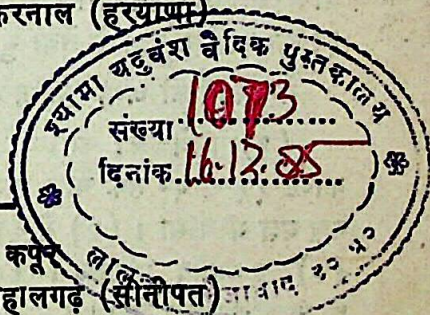 करनाल (हरयाणा)
श्यामा यदुवंश वैदिक पुस्तकालय
संख्या 1073
दिनांक 16-12-85
कपूर
हालगढ़ (सोनीपत)